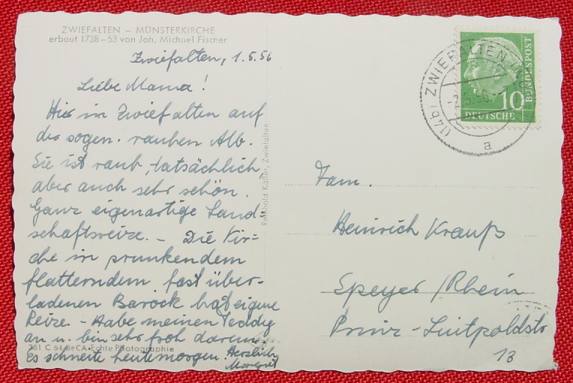 ZWIEFALTEN – MÜNSTERKIRCHE
erbaut 1738–53 von Joh. Michael Fischer
Zwiefalten, 1.5.56
Liebe Mama!
Hier in Zwiefalten auf
der sogen. rauhen Alb.
Sie ist rauh, tatsächlich
aber auch sehr schön.
Ganz eigenartige Land-
schaftsreize. – Die Kir-
che in prunkendem
flatterndem, fast über-
ladenen Barock hat eigene
Reize. – Habe meinen Teddy
an u. bin sehr froh darum.
Es schneite heute morgen. Herzlich
Margret
C 64 Echte Photographie
ZWIEFALTEN
a
10
DEUTSCHE
BUNDESPOST
Fam.
Heinrich Krauß
Speyer/Rhein
Prinz-Luitpoldstr
13